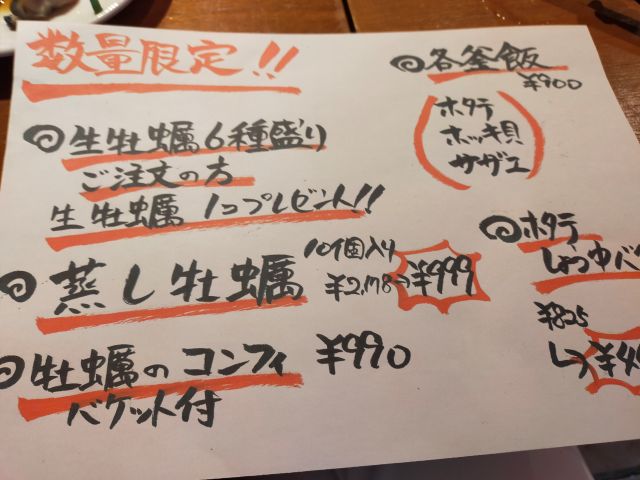 数量限定!!
生牡蠣6種盛り
ご注文の方
生牡蠣 1コプレゼント!!
蒸し牡蠣 10個入り
¥2,178→¥999
牡蠣のコンフィ ¥990
バケット付
各釜飯
¥900
ホタテ
ホッキ貝
サザエ
ホタテ
しょうゆバ
¥825